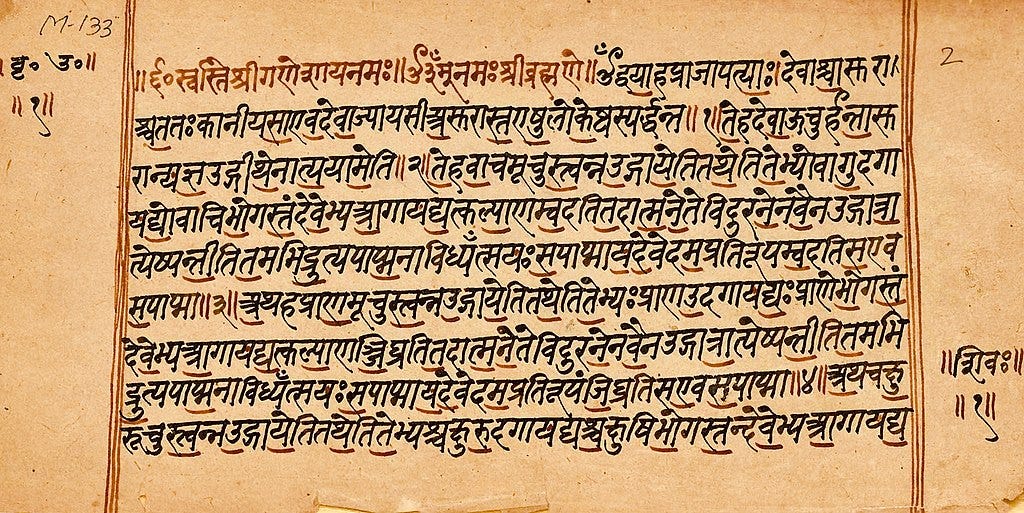 M-133
बृ॰ उ॰॥
॥१॥
2
॥६॰ स्वस्ति श्रीगणेशायनमः॥ॐनमःश्रीब्रह्मणे॥ॐद्वयाहप्राजापत्याः।देवाश्चासुरा।
श्चततःकानीयसाएवदेवाज्यायसीअसुरास्तएषुलोकेष्वस्पर्द्धन्त॥१॥तेहदेवाऊचुर्हन्तासु
रान्यज्ञउद्गीथेनात्ययामेति॥२॥तेहवाचमूचुस्त्वन्नउद्गायेतितथेतितेभ्योवागुदगा
यद्योवाचिभोगस्तंदेवेभ्यआगायद्यत्कल्याणम्वदतितदात्मनेतेविदुरनेनवैनउद्गात्रा
त्येष्यन्तीतितमभिद्रुत्यपाप्मनाविध्यँत्सयःसपाप्मायदेवेदमप्रतिरूपम्वदतिसएव
सपाप्मा॥३॥अथहप्राणमूचुस्त्वन्नउद्गायेतितथेतितेभ्यःप्राणउदगायद्यःप्राणेभोगस्तं
देवेभ्यआगायद्यत्कल्याणञ्जिघ्रतितदात्मनेतेविदुरनेनवैनउद्गात्रात्येष्यन्तीतितमभि
द्रुत्यपाप्मनाविध्यँत्सयःसपाप्मायदेवेदमप्रतिरूपंजिघ्रतिसएवसपाप्मा॥४॥अथचक्षु
रूचुस्त्वन्नउद्गायेतितथेतितेभ्यश्चक्षुरुदगायद्यश्चक्षुषिभोगस्तन्देवेभ्यआगायद्य
॥शिवः॥
॥१॥